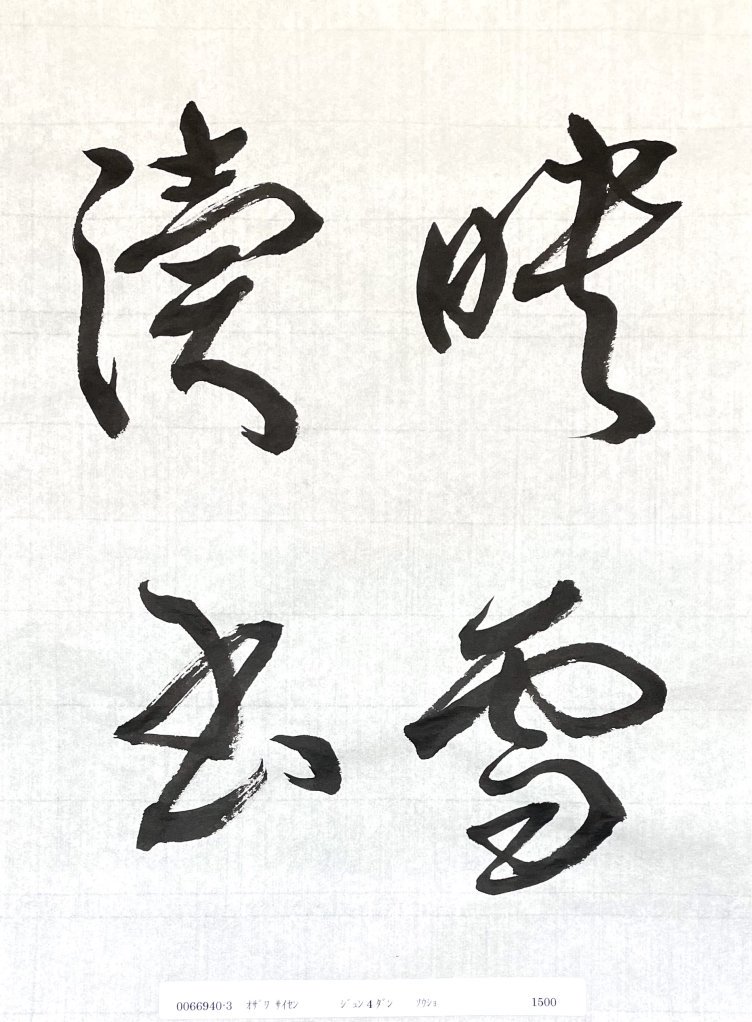 映雪
讀書
0066940-3 ｵｻﾞﾜ ｻｲｾﾝ ｼﾞｭﾝ4ﾀﾞﾝ ｿｳｼｮ 1500